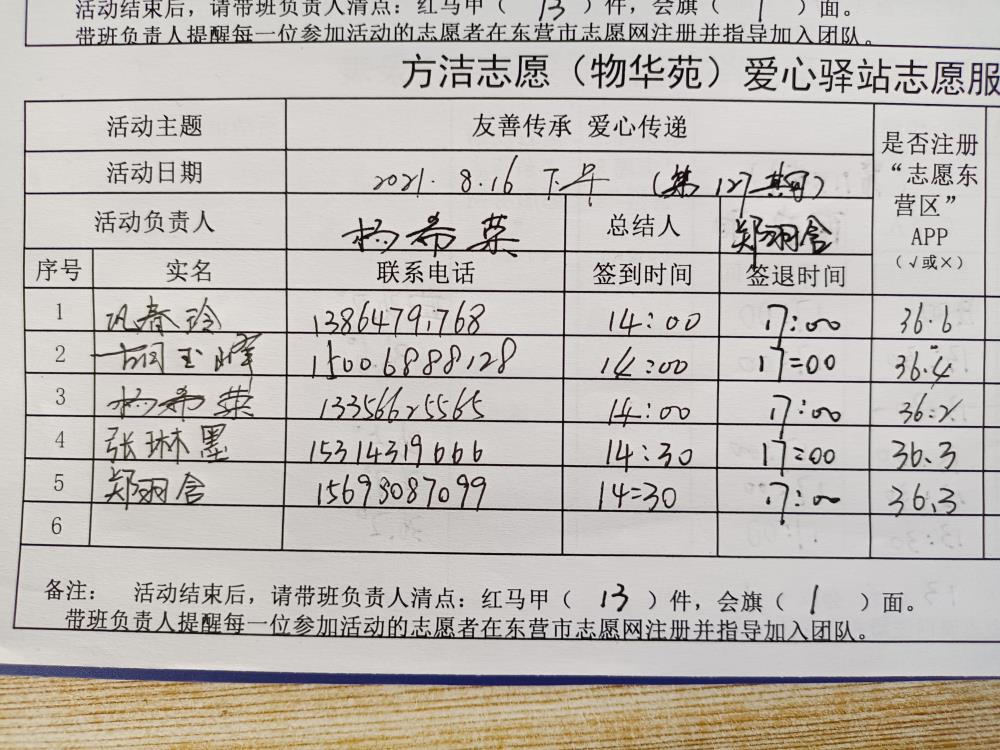 活动结束后,请带班负责人清点:红马甲( 13 )件,会旗( 1 )面。
带班负责人提醒每一位参加活动的志愿者在东营市志愿网注册并指导加入团队。
方洁志愿(物华苑)爱心驿站志愿服
活动主题 友善传承 爱心传递 是否注册“志愿东营区”APP(√或×)
活动日期 2021.8.16 下午 (第127期)
活动负责人 杨希荣 总结人 郑羽含
序号 实名 联系电话 签到时间 签退时间
1 巩春玲 13864791768 14:00 17:00 36.6
2 玉峰 15006888128 14:00 17:00 36.4
3 杨希荣 13356625565 14:00 17:00 36.2
4 张琳墨 15314319666 14:30 17:00 36.3
5 郑羽含 15693087099 14:30 17:00 36.3
6
备注: 活动结束后,请带班负责人清点:红马甲( 13 )件,会旗( 1 )面。
带班负责人提醒每一位参加活动的志愿者在东营市志愿网注册并指导加入团队。